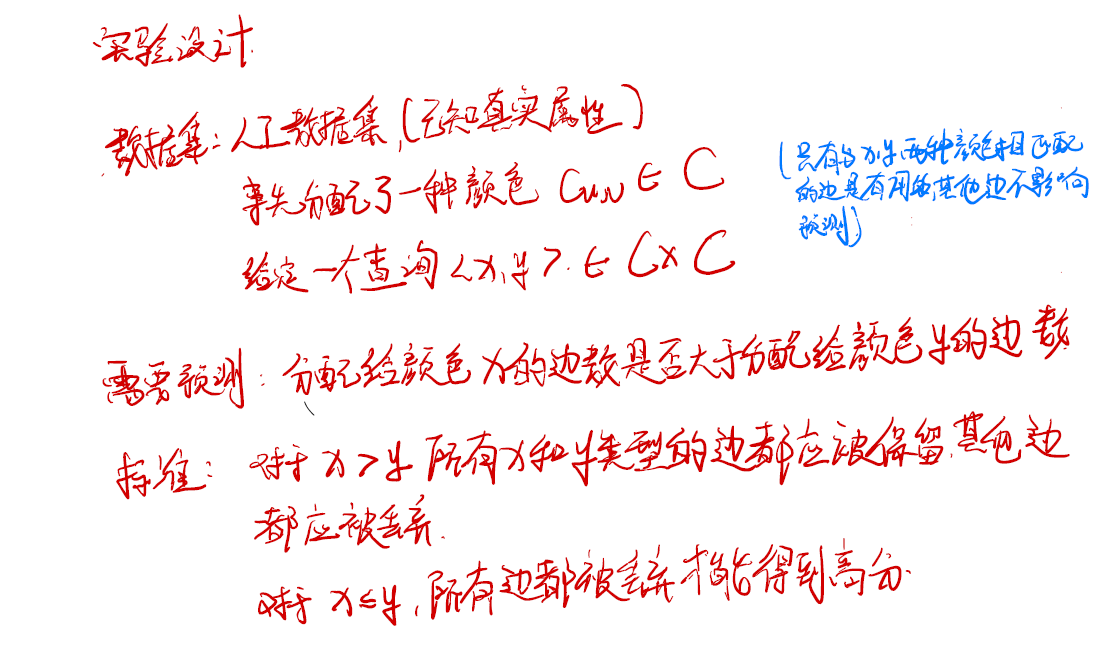 实验设计
数据集:人工数据集,(已知真实属性)
事先分配了一种颜色 Cu,v ∈ C
(只有与x,y两种颜色相匹配
的边是有用的,其他边不影响
预测)
给定一个查询 <x,y> ∈ C×C
需要预测:分配给颜色x的边数是否大于分配给颜色y的边数
标准:对于 x>y 所有x和y类型的边都应被保留,其他边
都应被丢弃.
对于 x≤y,所有边都被丢弃才能得到高分.